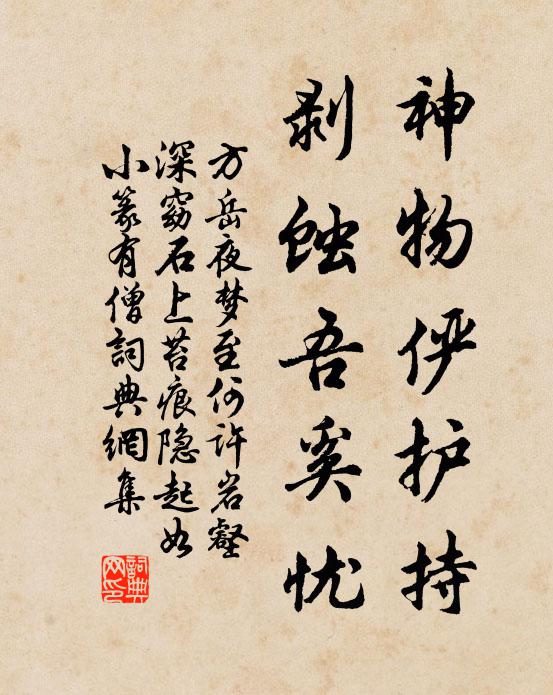 神物俨护持
剥蚀吾奚忧
方岳夜梦至何许岩壑
深窈石上苔痕隐起如
小篆有僧词典网集
詞典
网印